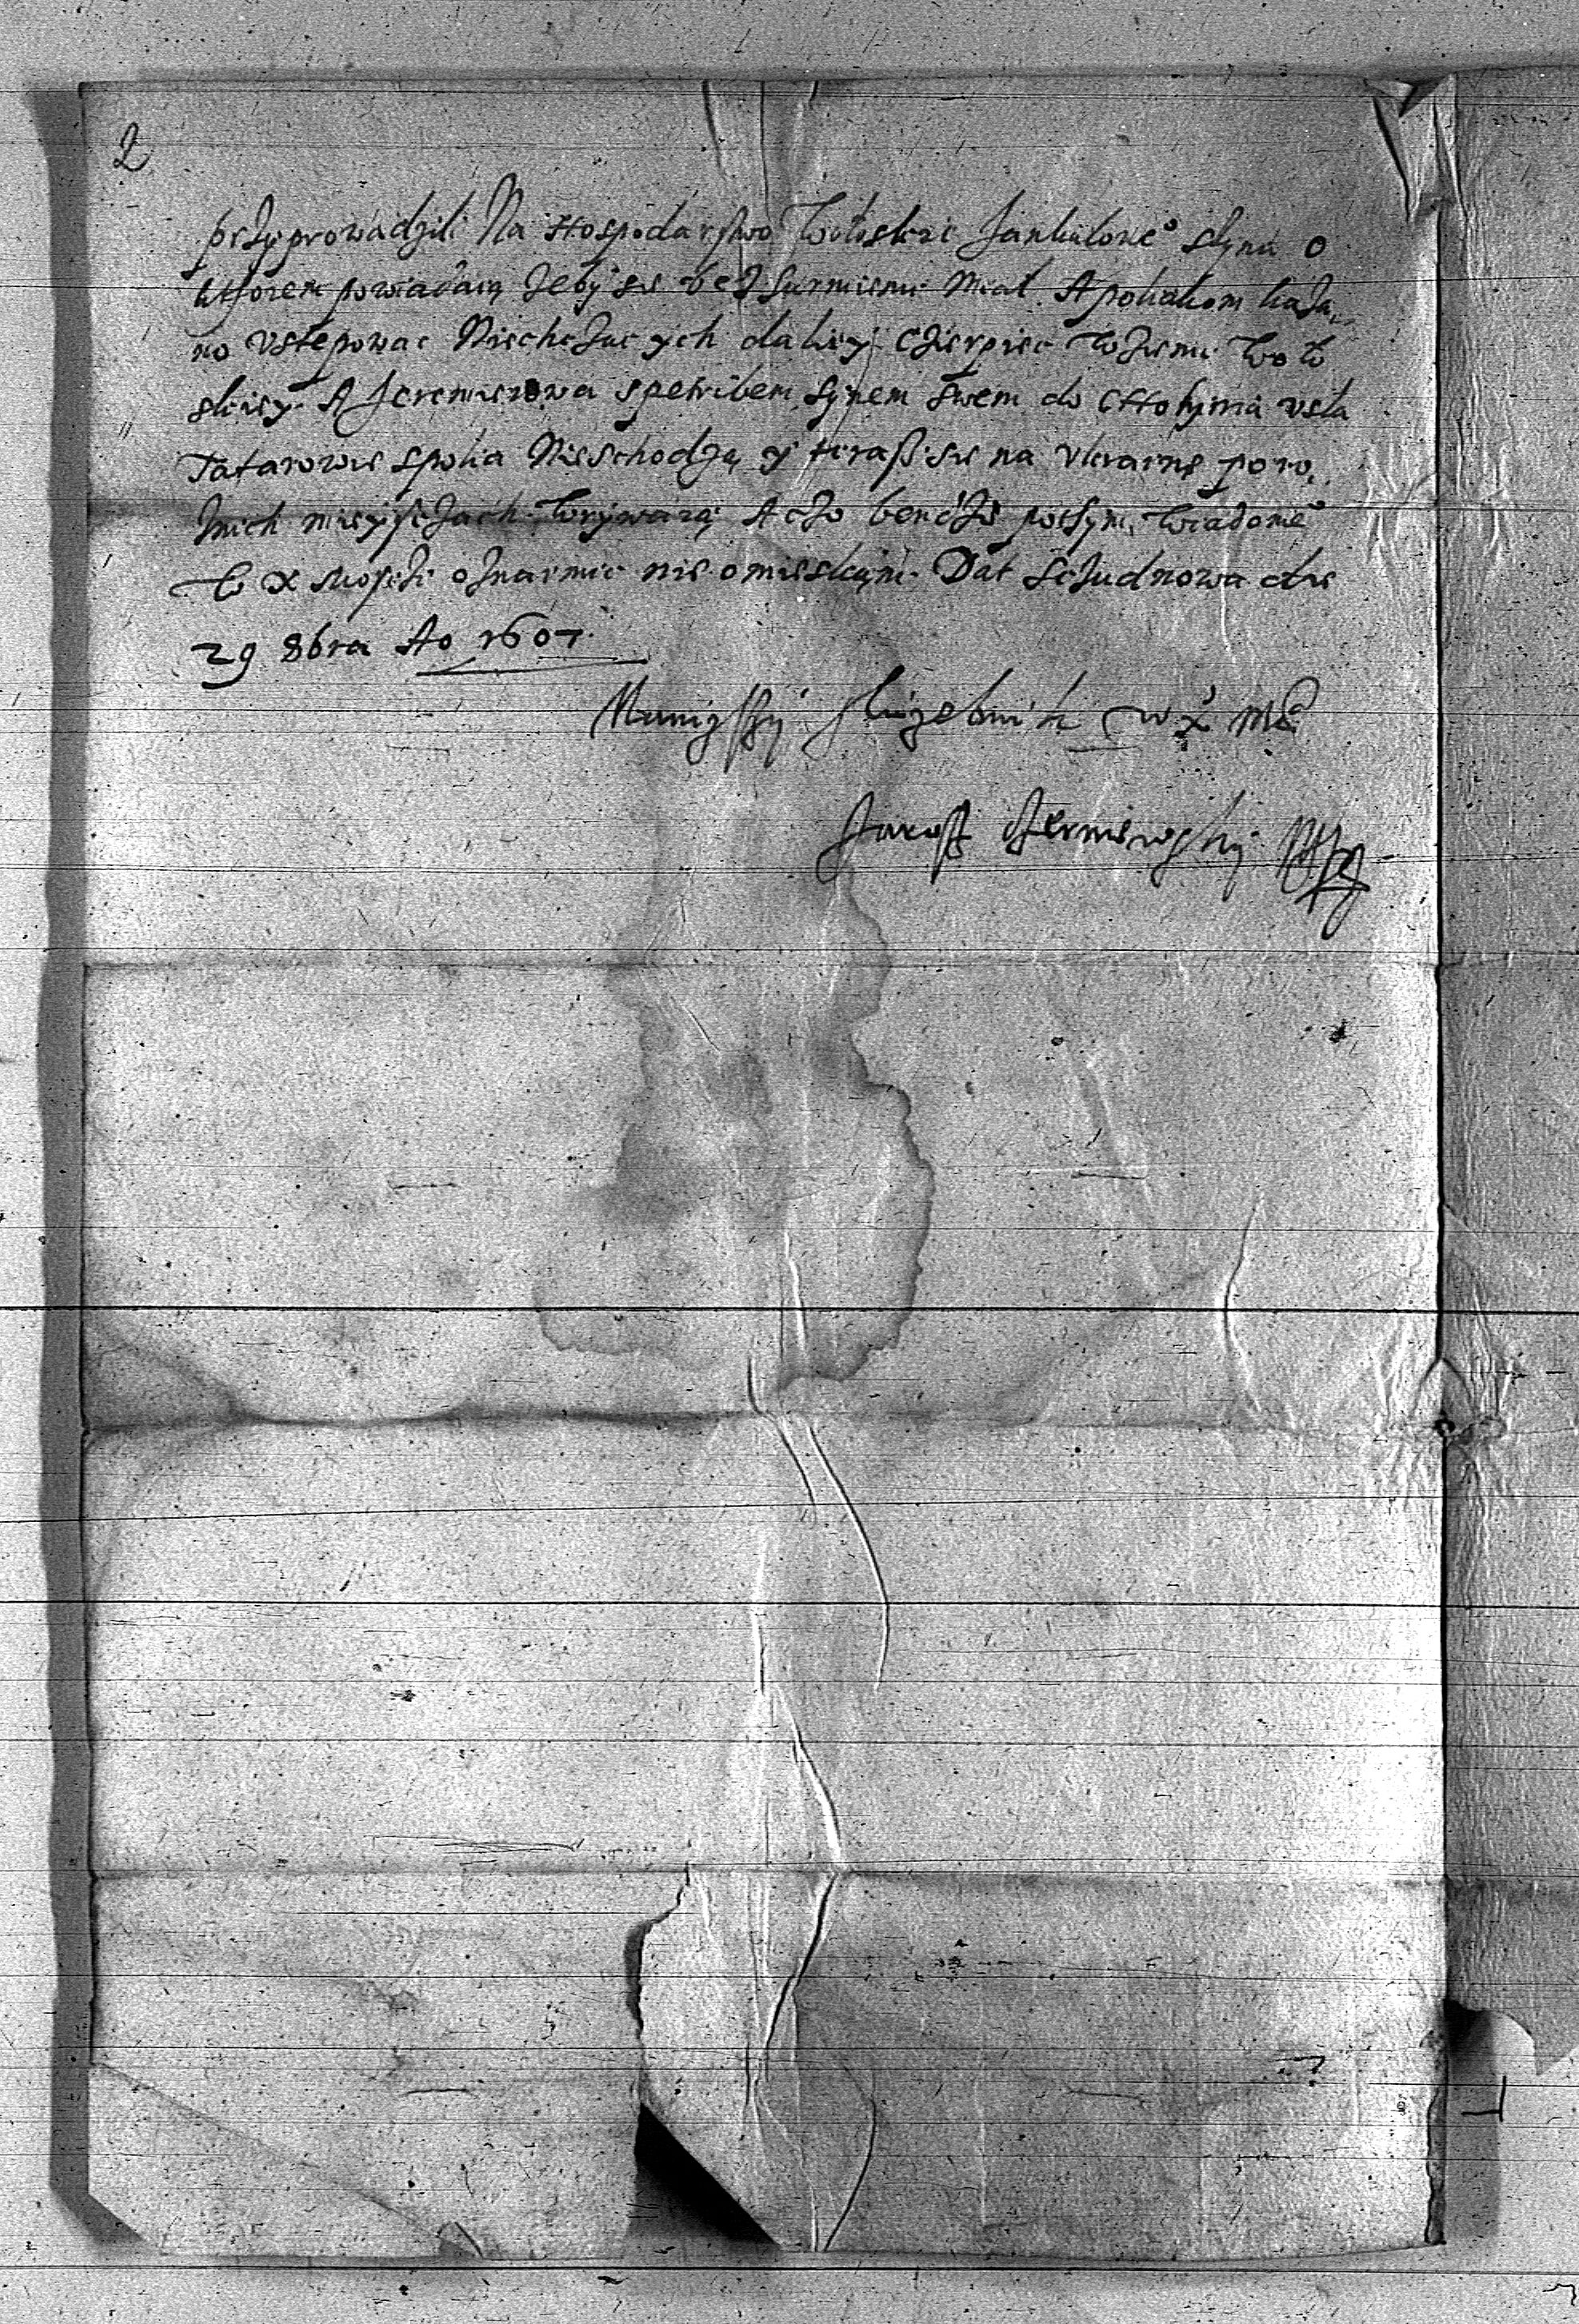 2
przyprowadzili Na Hospodarstwo Wołoskie Jankulowe° syna o
kthorem powiadaią zeby sie bezsurmienic Miał. A polakom kaza,,
no vstępowac Niechczących daliey czierpiec w ziemi Woło
skiey. A Jeremieiowa spetribem synem swem do Chocimia vsla
Tatarowie spolia Nieschodzą y teraß sie na Vkrainę poro,,
znich mieysczach wrywaią A czo bendzie potym wiadome°
W X Mosczi oznaimic nie omieskam. Dat sczudnowa die
29 8bra Ao 1607
Nanizssy sluzebnik W X Mci